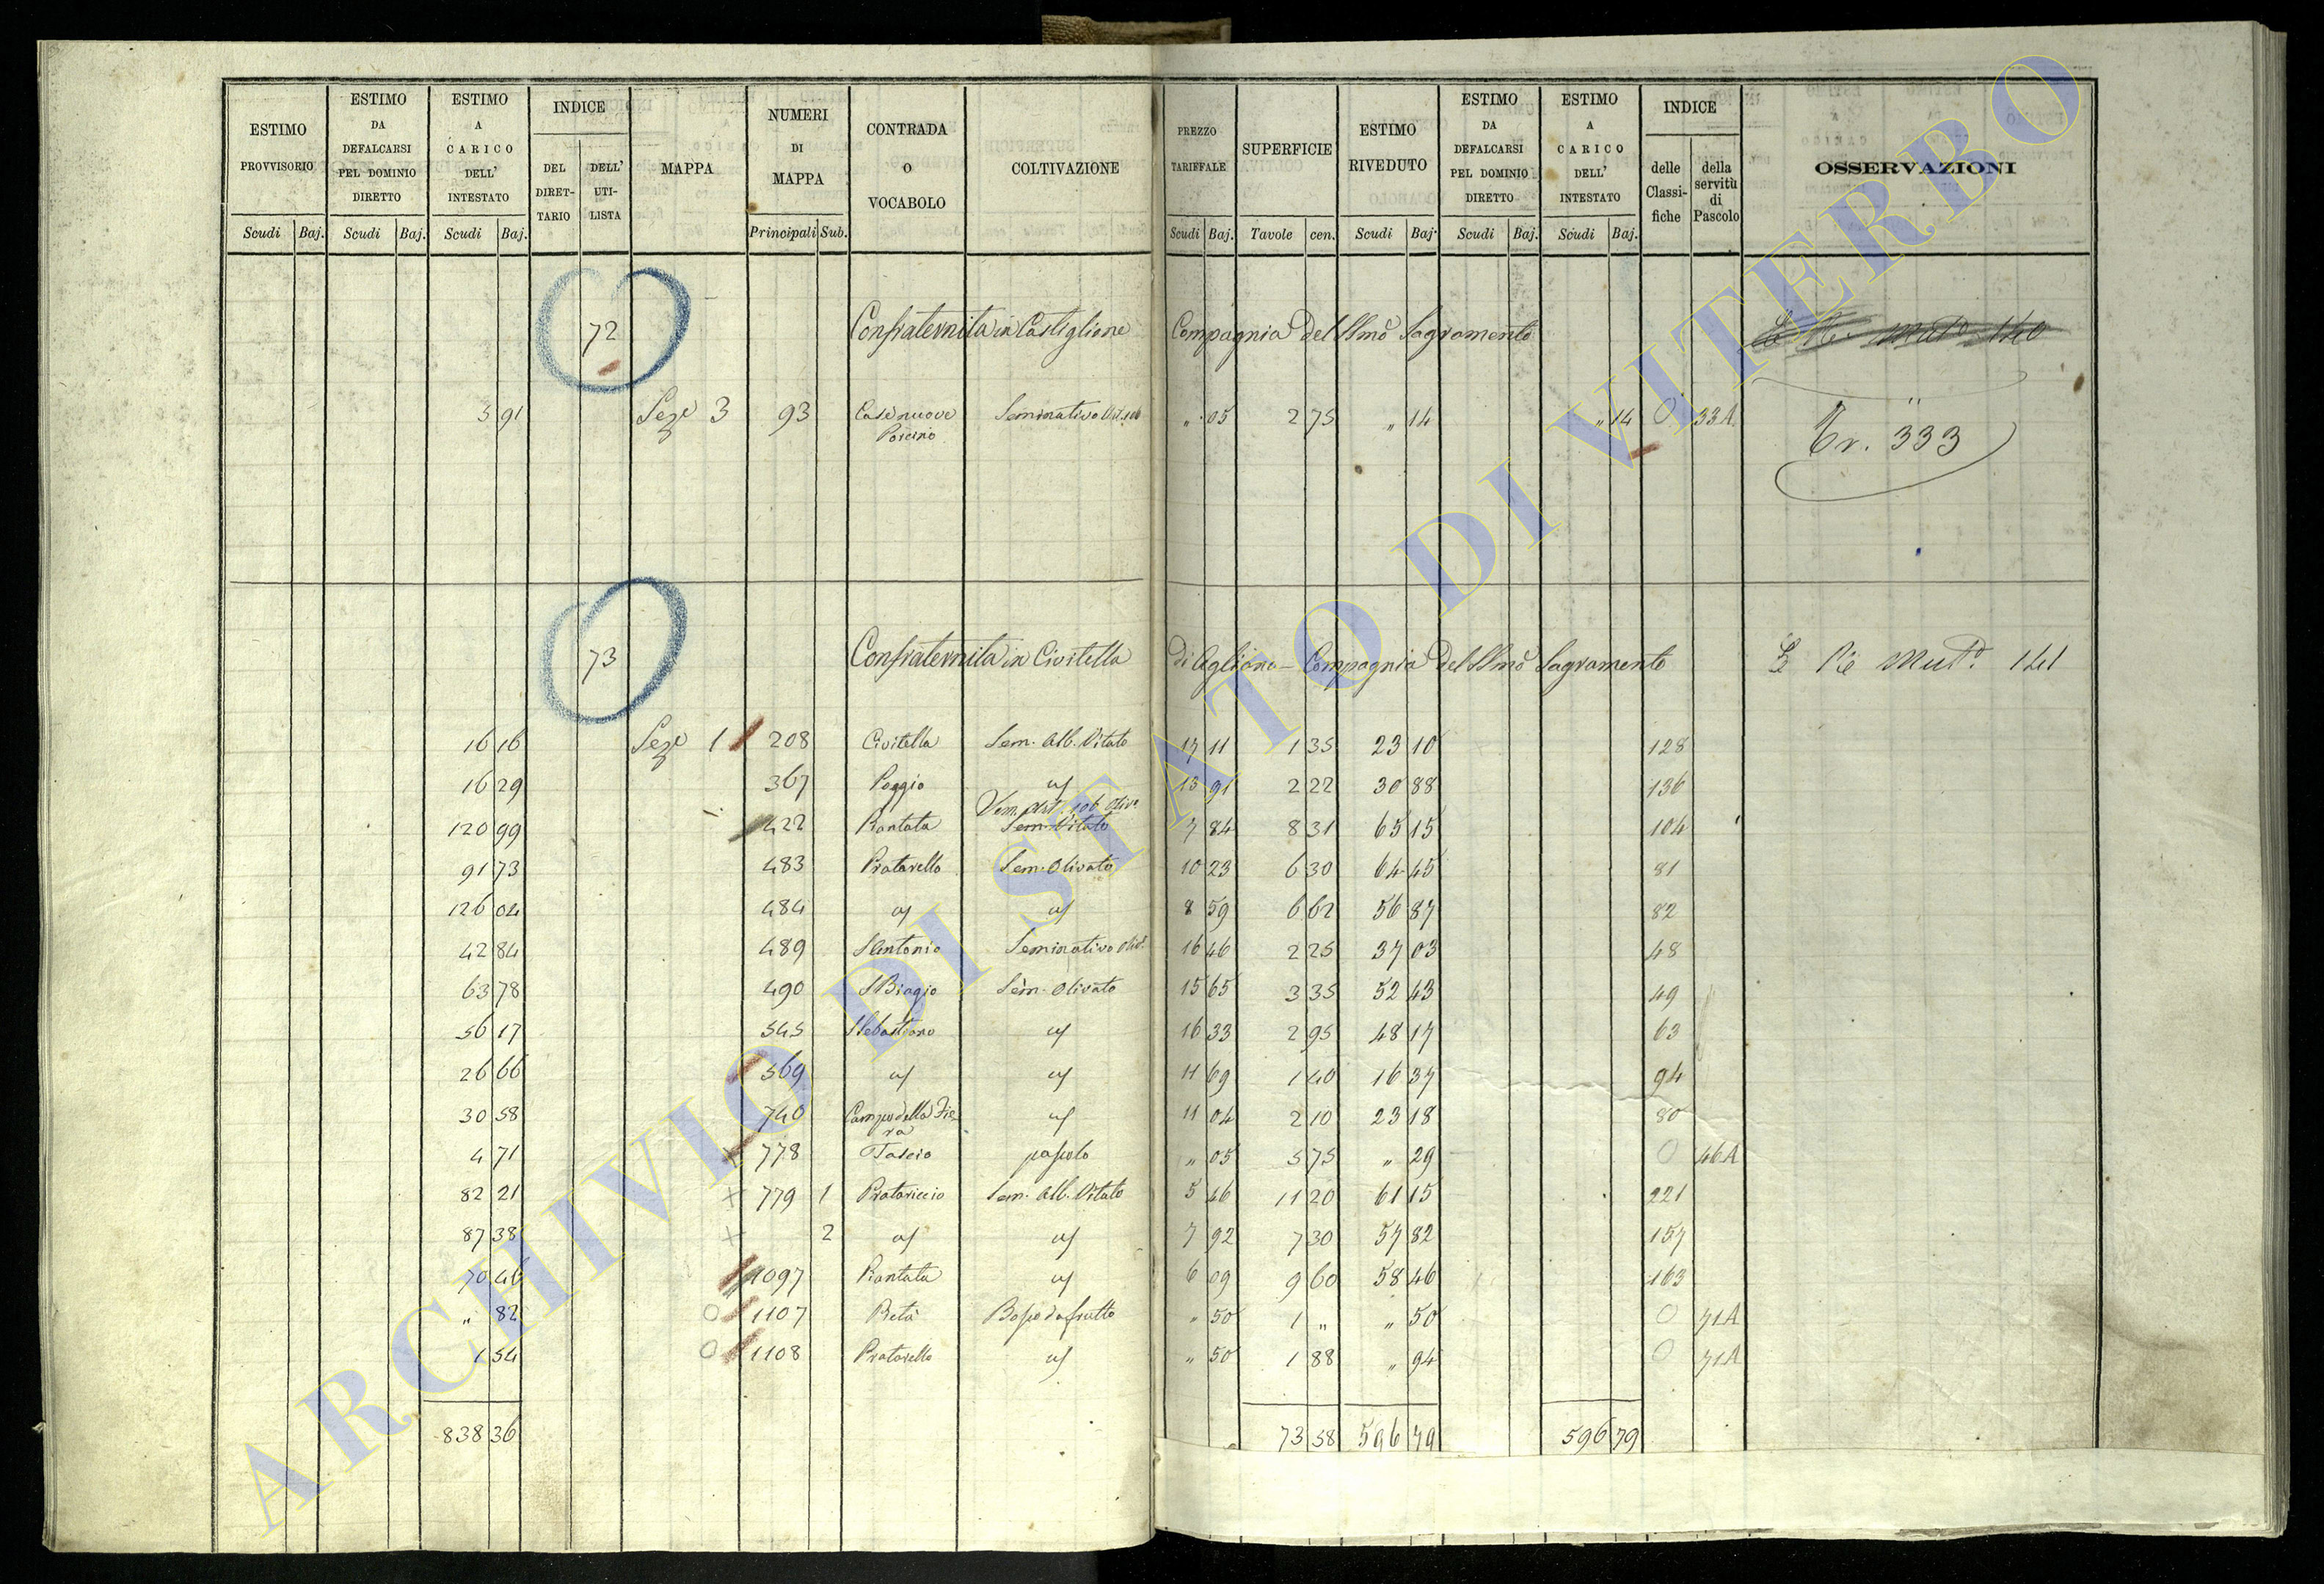 ESTIMO PROVVISORIO | ESTIMO DA DEFALCARSI PEL DOMINIO DIRETTO | ESTIMO A CARICO DELL' INTESTATO | INDICE DEL DIRET- TARIO | DELL' UTI- LISTA | MAPPA | NUMERI DI MAPPA | CONTRADA O VOCABOLO | COLTIVAZIONE | PREZZO TARIFFALE | SUPERFICIE | ESTIMO RIVEDUTO | ESTIMO DA DEFALCARSI PEL DOMINIO DIRETTO | ESTIMO A CARICO DELL' INTESTATO | INDICE delle Classi- fiche | della servitù di Pascolo | OSSERVAZIONI
Scudi Baj. | Scudi Baj. | Scudi Baj. | Principali Sub. | Scudi Baj. | Tavole cen. | Scudi Baj. | Scudi Baj. | Scudi Baj.
72 Confraternita in Castiglione Compagnia del SSmo Sagramento 140
5 91 Seze 3 93 Case nuove Seminativo " 05 2 75 " 14 " 14 0 33A
Porcino
Tr. 333
73 Confraternita in Civitella di Agliano - Compagnia del SSmo Sagramento 141
16 16 Seze 1 208 Civitella Sem. Alb. Vitato 17 11 1 35 23 10 128
16 29 367 Poggio 13 91 2 22 30 88 136
120 99 422 Piantata Sem. Vitato 7 84 8 31 65 15 104
91 73 483 Pratarello Sem. Olivato 10 23 6 30 64 45 81
126 04 484 8 59 6 62 56 87 82
42 84 489 S Antonio Seminativo Oliv. 16 46 2 25 37 03 48
63 78 490 S Biagio Sem. Olivato 15 65 3 35 52 43 49
56 17 545 S Sebastiano 16 33 2 95 48 17 63
26 66 569 11 69 1 40 16 37 94
30 58 740 Campo della Fie- 11 04 2 10 23 18 80
ra
4 71 778 pascolo " 05 5 75 " 29 0 46A
82 21 779 1 Pratariccio Sem. Alb. Vitato 5 46 11 20 61 15 221
87 38 2 7 92 7 30 57 82 157
70 46 1097 Piantata 6 09 9 60 58 46 163
" 82 1107 Bosco da frutto " 50 1 " " 50 0 71A
1 54 1108 Pratarello " 50 1 88 " 94 0 71A
838 36 73 58 596 79 596 79
ARCHIVIO DI STATO DI VITERBO